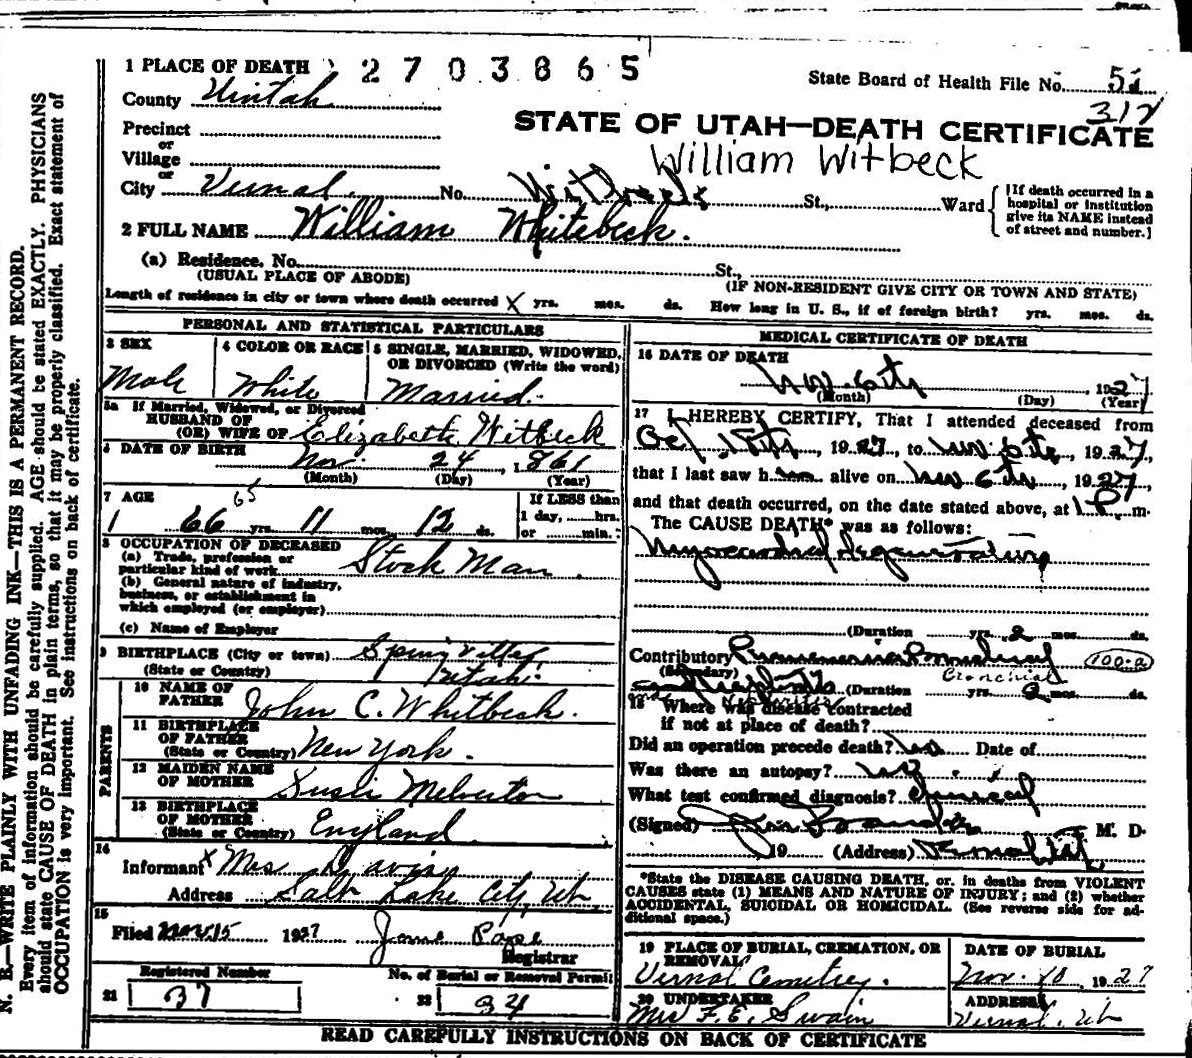 1 PLACE OF DEATH 2703865
State Board of Health File No. 51
312
County Uintah
STATE OF UTAH—DEATH CERTIFICATE
Precinct
or
Village
William Witbeck
or
City Vernal. No. St., Ward
{If death occurred in a hospital or institution give its NAME instead of street and number.}
2 FULL NAME William Whitebeck.
(a) Residence. No. St.,
(USUAL PLACE OF ABODE) (IF NON-RESIDENT GIVE CITY OR TOWN AND STATE)
Length of residence in city or town where death occurred X yrs. mos. ds. How long in U. S., if of foreign birth? yrs. mos. ds.
PERSONAL AND STATISTICAL PARTICULARS
3 SEX 4 COLOR OR RACE 5 SINGLE, MARRIED, WIDOWED, OR DIVORCED (Write the word)
Male White Married.
5a If Married, Widowed, or Divorced
HUSBAND OF
(OR) WIFE OF Elizabeth Witbeck
6 DATE OF BIRTH Nov. 24, 1861
(Month) (Day) (Year)
7 AGE 65 If LESS than
66 yrs. 11 mos. 12 ds. 1 day, hrs.
or min.
8 OCCUPATION OF DECEASED
(a) Trade, profession or particular kind of work Stock Man.
(b) General nature of industry, business, or establishment in which employed (or employer)
(c) Name of Employer
9 BIRTHPLACE (City or town) Spring
(State or Country) Utah.
PARENTS
10 NAME OF FATHER John C. Whitbeck.
11 BIRTHPLACE OF FATHER (State or Country) New York.
12 MAIDEN NAME OF MOTHER Susie
13 BIRTHPLACE OF MOTHER (State or Country) England.
14
Informant X Mrs
Address Salt Lake City, Ut.
15
Filed Nov. 15 1927 Jane Pope
Registrar
Registered Number No. of Burial or Removal Permit
21 37 22 34
MEDICAL CERTIFICATE OF DEATH
16 DATE OF DEATH
Nov. 6th, 1927
(Month) (Day) (Year)
17 I HEREBY CERTIFY, That I attended deceased from
Oct, 1927, to Nov. 6th, 1927,
that I last saw h alive on Nov 6th, 1927,
and that death occurred, on the date stated above, at 1 P m.
The CAUSE DEATH* was as follows:
Myocardial degeneration
(Duration yrs. 2 mos. ds.
Contributory Pneumonia Bronchial 100-a
(Secondary) Bronchial
(Duration yrs. 2 mos. ds.
18 Where was disease contracted
if not at place of death?
Did an operation precede death? no Date of
Was there an autopsy? no
What test confirmed diagnosis?
(Signed) M. D.
19 (Address) Vernal Utah
*State the DISEASE CAUSING DEATH, or, in deaths from VIOLENT
CAUSES state (1) MEANS AND NATURE OF INJURY; and (2) whether
ACCIDENTAL, SUICIDAL OR HOMICIDAL. (See reverse side for additional space.)
19 PLACE OF BURIAL, CREMATION, OR REMOVAL DATE OF BURIAL
Vernal Cemetrey. Nov. 10, 1927
20 UNDERTAKER ADDRESS
Mrs F. E. Swain Vernal, Ut
READ CAREFULLY INSTRUCTIONS ON BACK OF CERTIFICATE
N. B.—WRITE PLAINLY WITH UNFADING INK—THIS IS A PERMANENT RECORD.
Every item of information should be carefully supplied. AGE should be stated EXACTLY. PHYSICIANS
should state CAUSE OF DEATH in plain terms, so that it may be properly classified. Exact statement of
OCCUPATION is very important. See instructions on back of certificate.